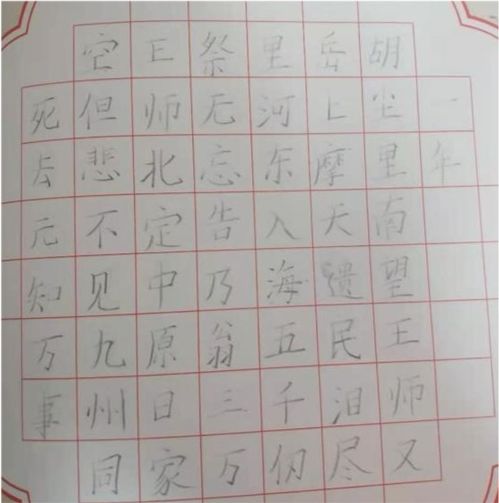 死去元知万事
空但悲不见九州同
王师北定中原日家
祭无忘告乃翁三万
里河东入海五千仞
岳上摩天遗民泪尽
胡尘里南望王师又
一年